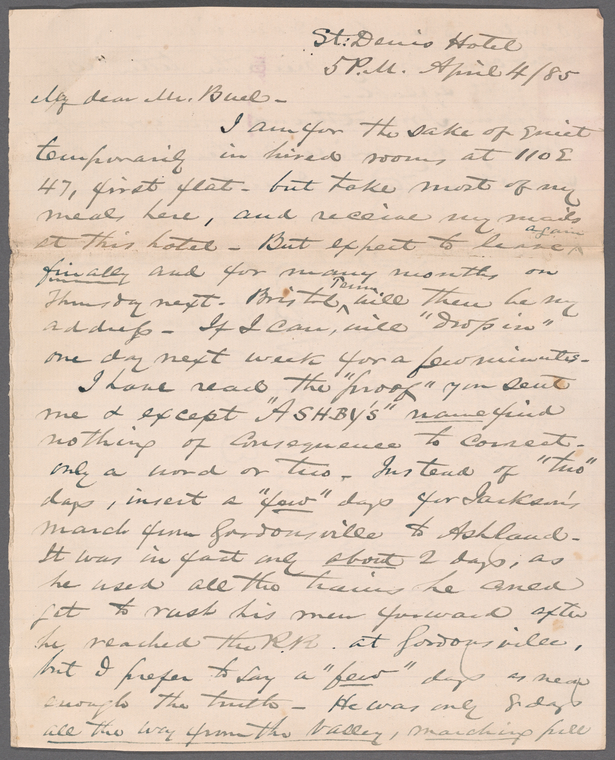 St. Denis Hotel
5 P.M. April 4/85
My dear Mr. Buel -
I am for the sake of quiet
temporarily in hired rooms at 110 E
47, first flat - but take most of my
meals here, and receive my mails
at this hotel - But expect to leave again
finally and for many months on
Thursday next. Bristol, Tenn. will then be my
address - If I can, will "drop in"
one day next week for a few minutes -
I have read the "proof" you sent
me & except "ASHBY'S" name find
nothing of consequence to correct -
only a word or two - Instead of "two"
days, insert a "few" days for Jackson's
march from Gordonsville to Ashland -
It was in fact only about 2 days, as
he used all the trains he could
get to rush his men forward after
he reached the RR. at Gordonsville,
but I prefer to say a "few" days as near
enough the truth - He was only 8 days
all the way from the Valley, marching full